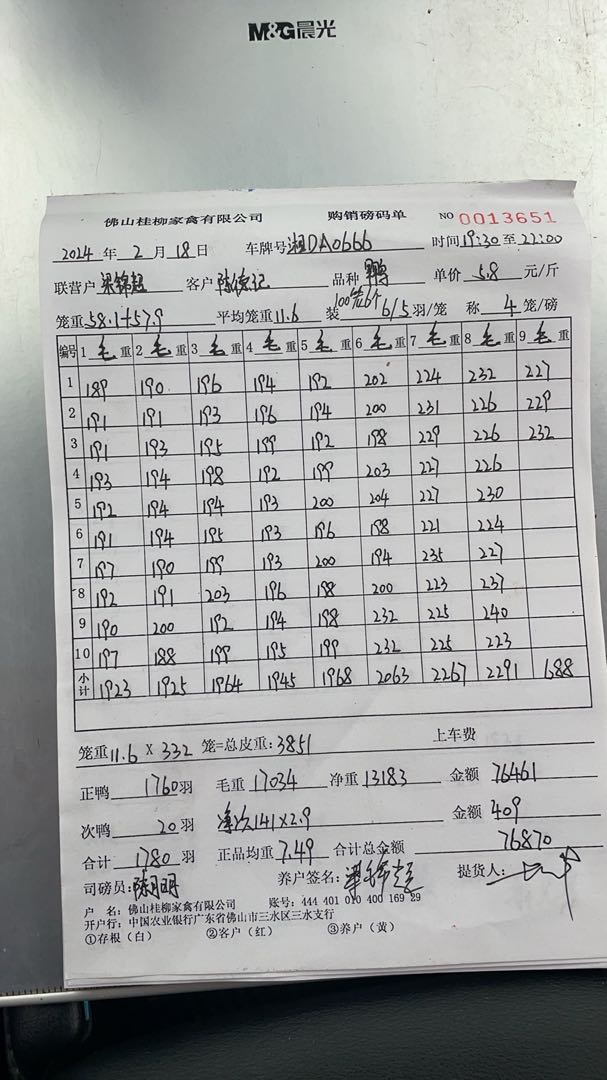 M&G晨光
佛山桂柳家禽有限公司 购销磅码单 NO 0013651
2024年2月18日 车牌号湘DA0666 时间19:30至22:00
联营户 梁锦超 客户 陈德记 品种 鸭 单价 5.8 元/斤
笼重58.1+57.9 平均笼重11.6 装 6/5羽/笼 称 4 笼/磅
编号 1毛重 2毛重 3毛重 4毛重 5毛重 6毛重 7毛重 8毛重 9毛重
1 189 190 196 194 192 202 224 232 227
2 191 191 193 196 194 200 231 226 229
3 191 193 195 199 192 198 229 226 232
4 193 194 198 192 199 203 227 226
5 192 194 194 193 200 204 227 230
6 191 194 195 193 196 198 221 224
7 197 190 199 193 200 194 235 227
8 192 191 203 196 198 200 223 237
9 190 200 192 194 198 232 225 240
10 197 188 199 195 199 232 225 223
小计 1923 1925 1964 1945 1968 2063 2267 2291 688
笼重11.6 X 332 笼=总皮重:3851 上车费
正鸭 1760羽 毛重17034 净重13183 金额 76461
次鸭 20羽 净次141×2.9 金额 409
合计 1780 羽 正品均重 7.49 合计总金额 76870
司磅员:陈月明 养户签名:梁锦超 提货人:
户 名:佛山桂柳家禽有限公司 账号:444 401 010 400 169 29
开户行:中国农业银行广东省佛山市三水区三水支行
①存根(白) ②客户(红) ③养户(黄)